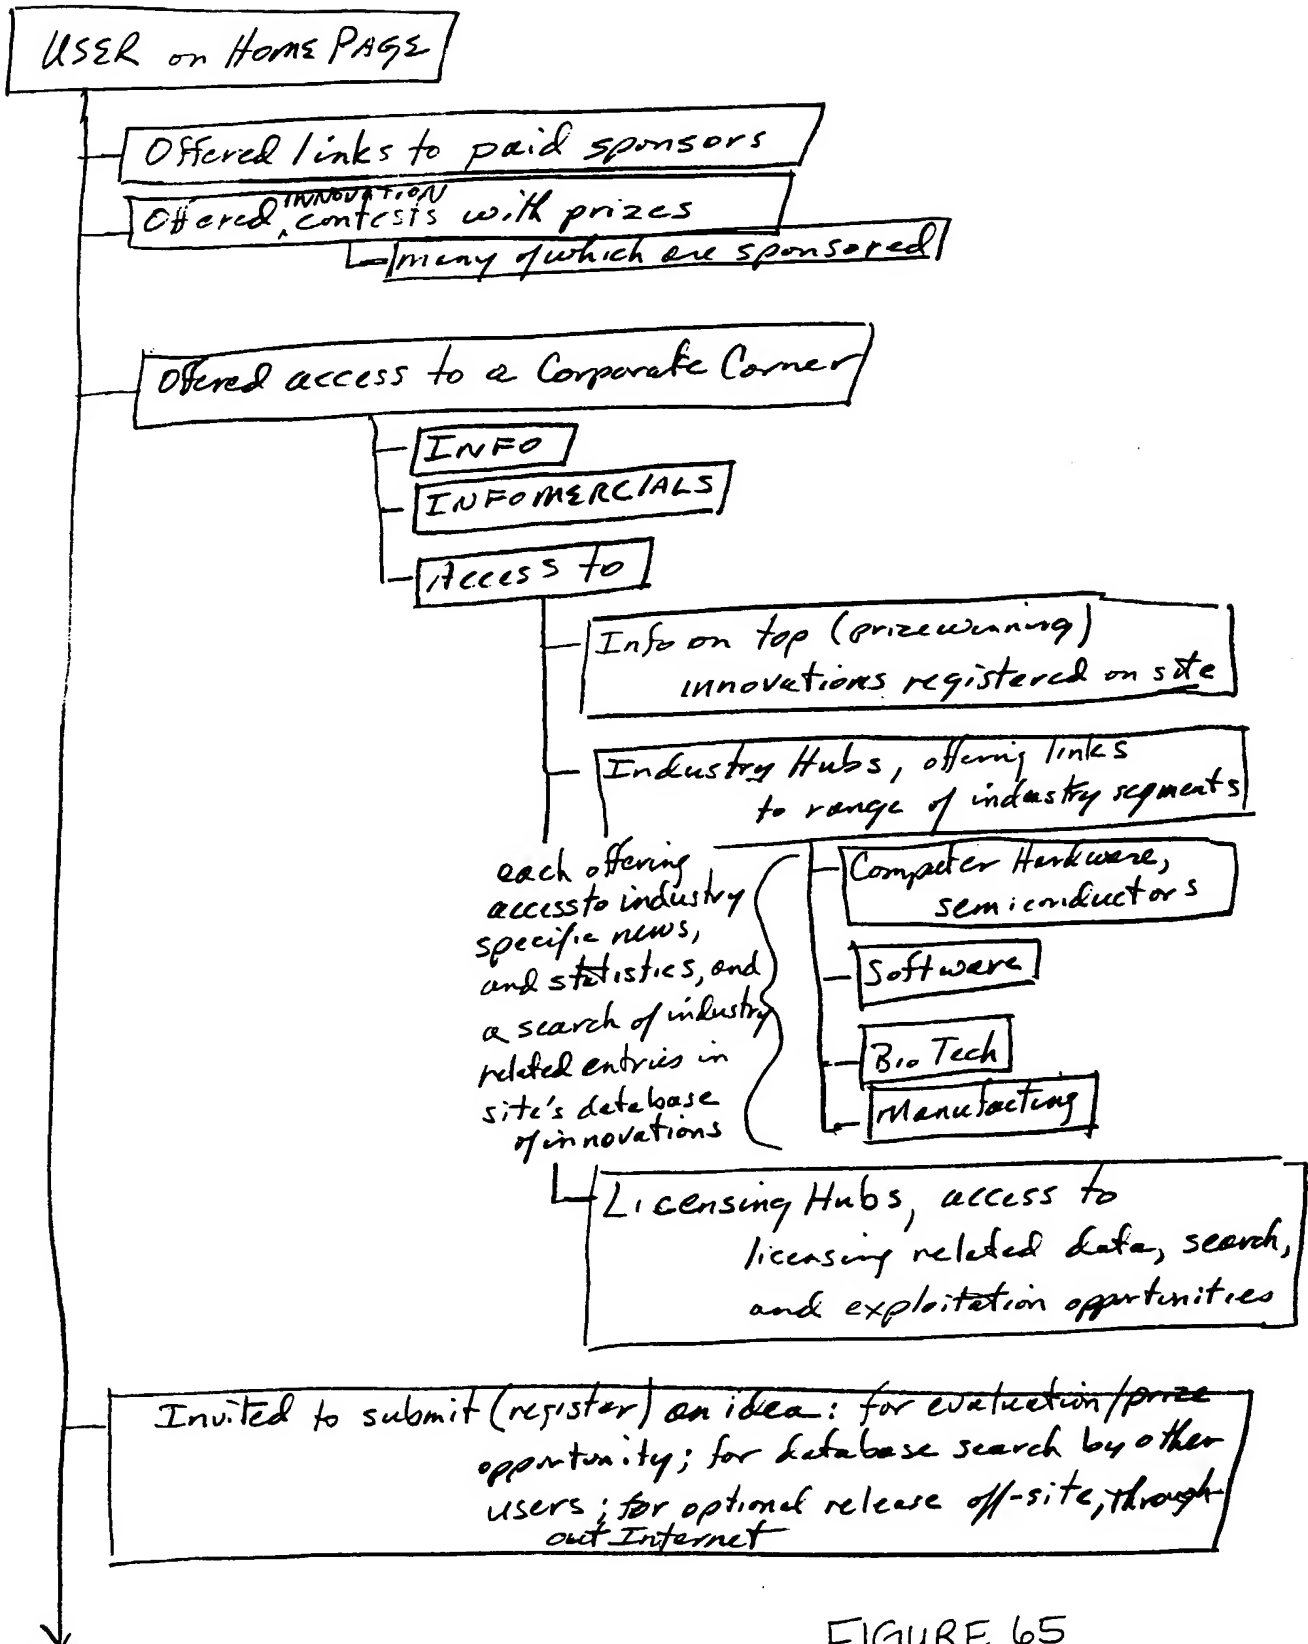 USER on HOME PAGE
Offered links to paid sponsors
INNOVATION
Offered contests with prizes
many of which are sponsored
Offered access to a Corporate Corner
INFO
INFOMERCIALS
Access to
Info on top (prizewinning)
innovations registered on site
Industry Hubs, offering links
to range of industry segments
each offering
access to industry
specific news,
and statistics, and
a search of industry
related entries in
site's database
of innovations
Computer Hardware,
semiconductors
Software
BioTech
Manufacting
Licensing Hubs, access to
licensing related data, search,
and exploitation opportunities
Invited to submit (register) an idea: for evaluation/prize
opportunity; for database search by other
users; for optional release off-site, through-
out Internet
FIGURE 65